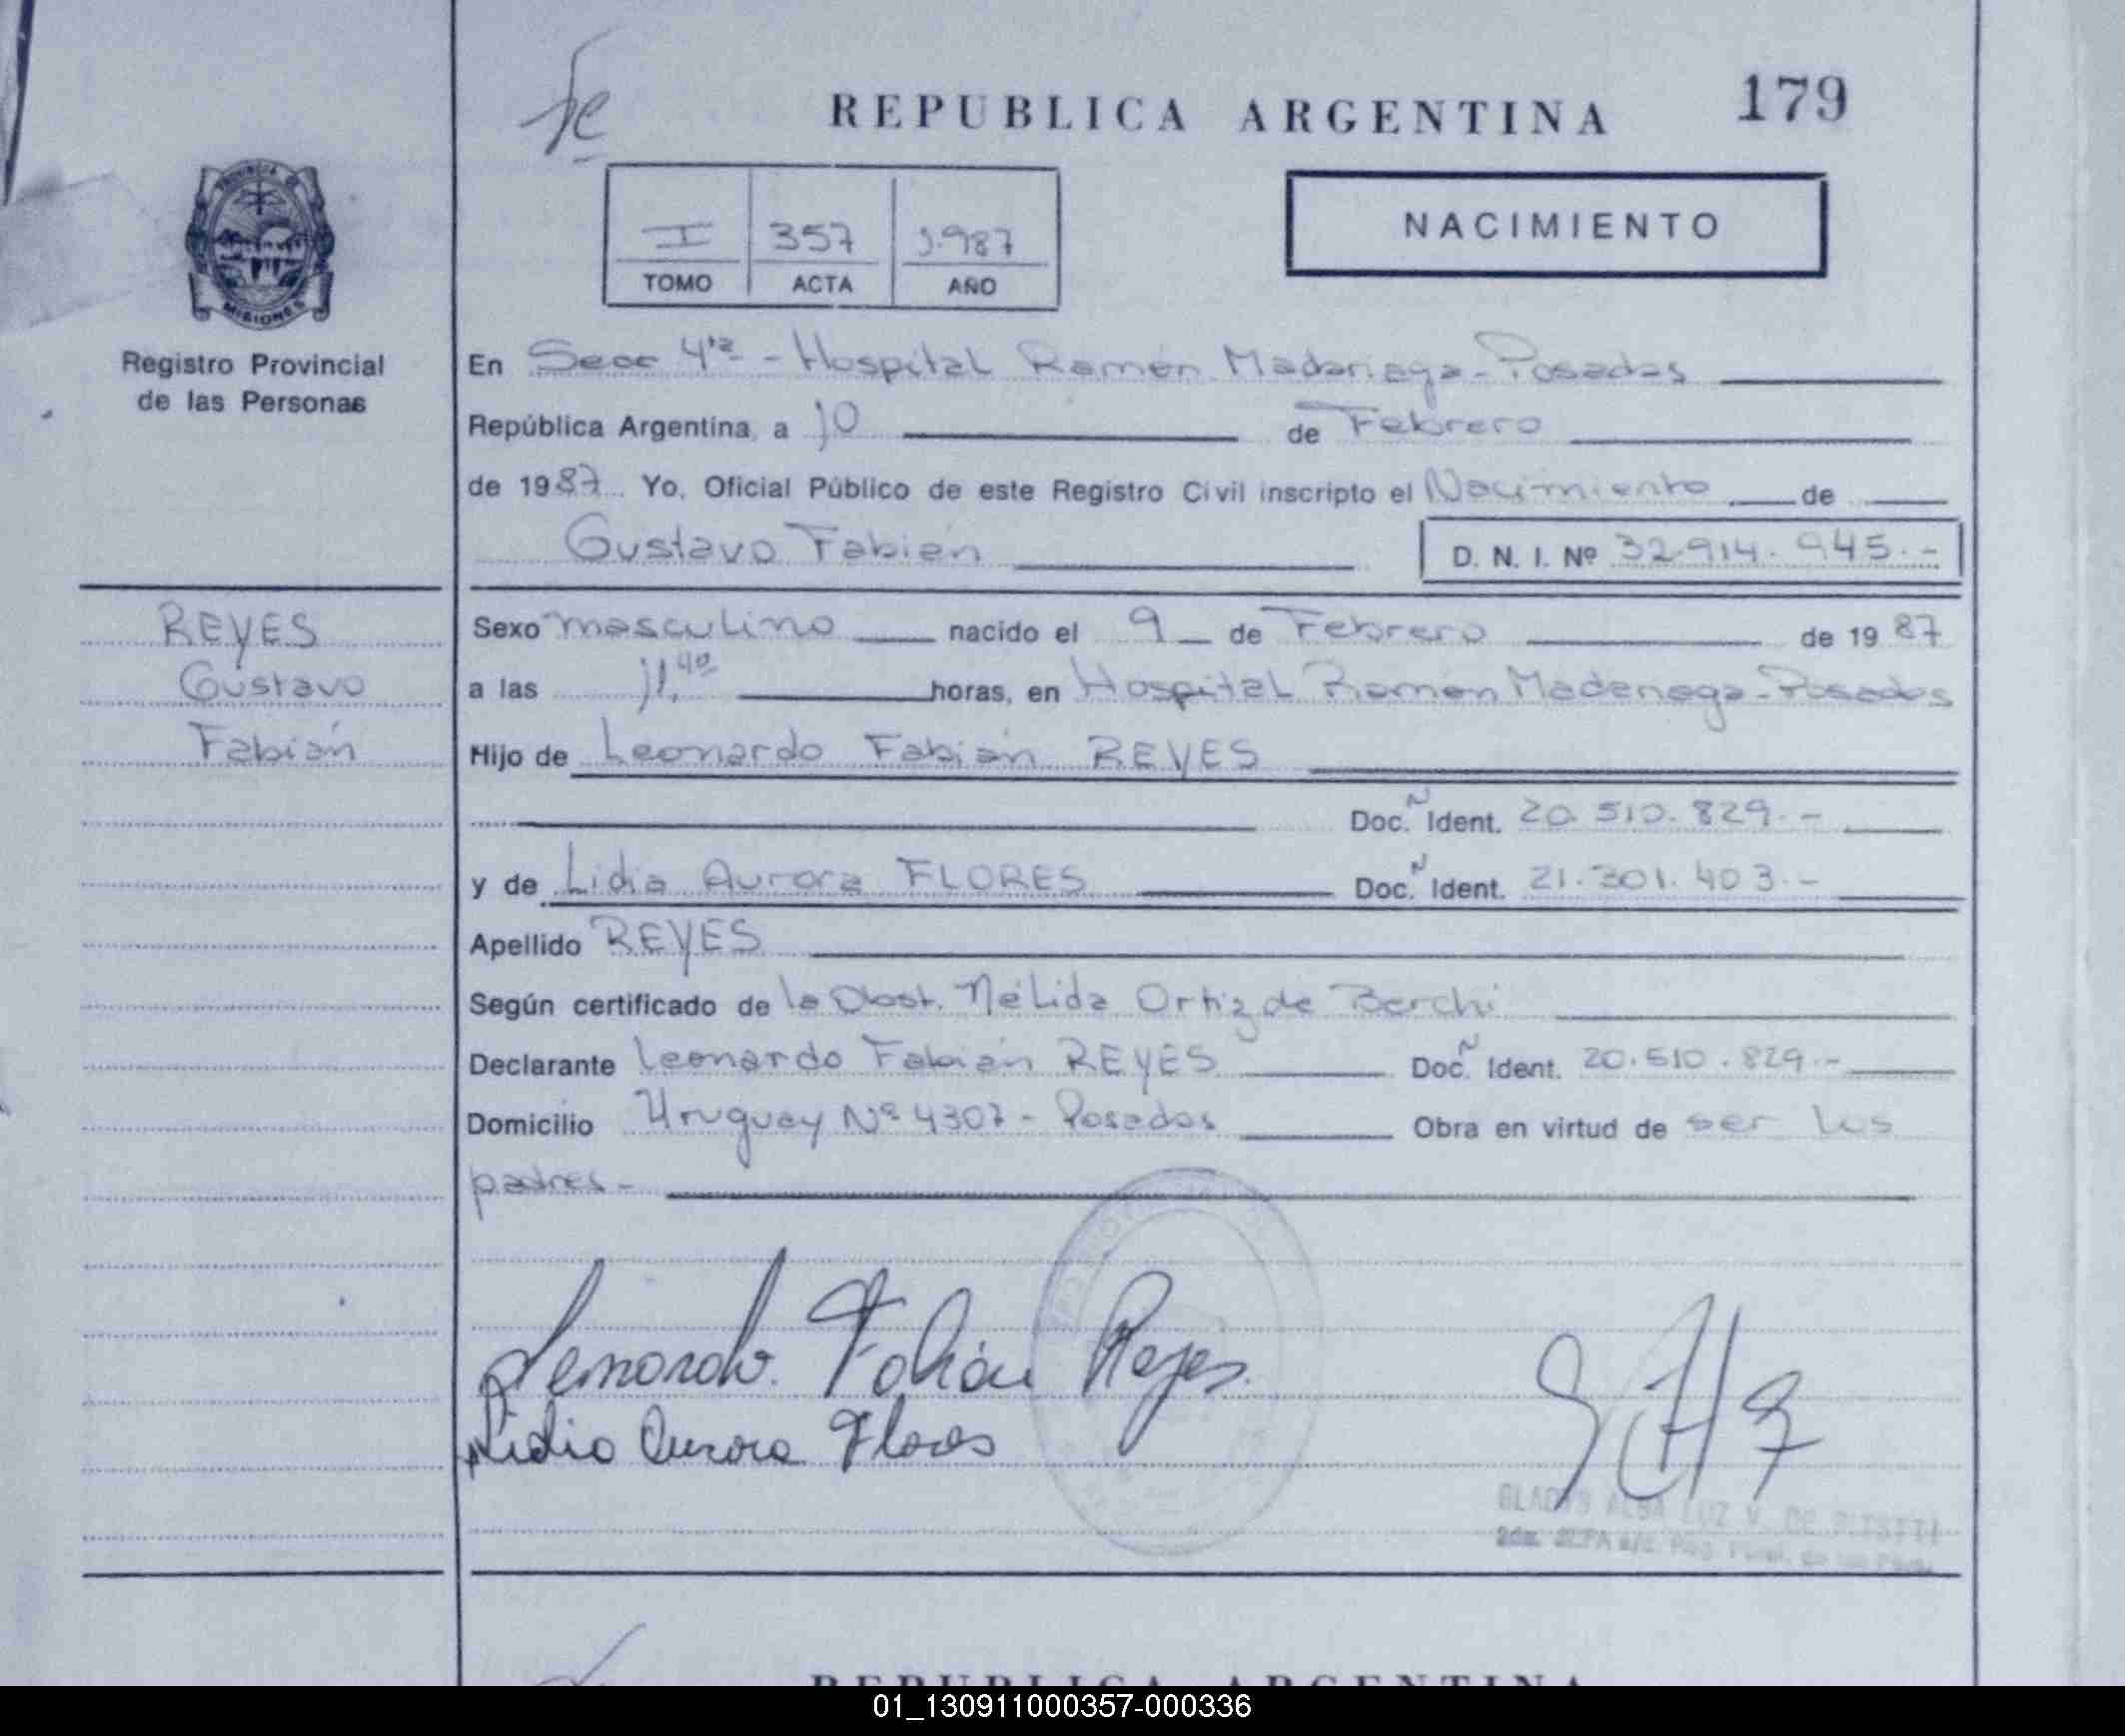 REPUBLICA ARGENTINA 179
I 357 1.987
TOMO ACTA AÑO
NACIMIENTO
PROVINCIA DE
MISIONES
Registro Provincial
de las Personas
En Secc 4ta - Hospital Ramón Madariaga - Posadas
República Argentina, a 10 de Febrero
de 1987 Yo, Oficial Público de este Registro Civil inscripto el Nacimiento de
Gustavo Fabián D. N. I. Nº 32.914.945.-
REYES
Gustavo
Fabián
Sexo masculino nacido el 9 de Febrero de 1987
a las 11,40 horas, en Hospital Ramón Madariaga - Posadas
Hijo de Leonardo Fabián REYES
Doc. Ident. 20.510.829.-
y de Lidia Aurora FLORES Doc. Ident. 21.301.403.-
Apellido REYES
Según certificado de la Obst. Nélida Ortiz de Berchi
Declarante Leonardo Fabián REYES Doc. Ident. 20.510.829.-
Domicilio Uruguay Nº 4307 - Posadas Obra en virtud de ser los
padres -
Leonardo Fabián Reyes
Lidia Aurora Flores
GLADYS ALBA LUZ V. DE
REPUBLICA ARGENTINA
01_130911000357-000336